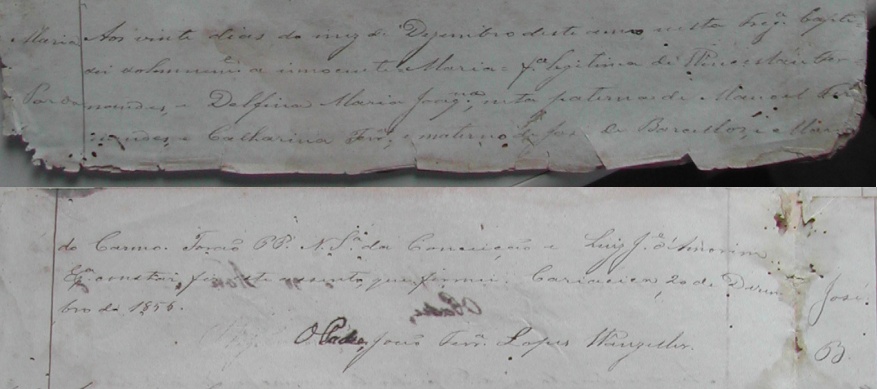 Maria Aos vinte dias do mez de Dezembro deste anno nesta Freg.ª bapti
sei solemnem.e a innocente Maria = f.ª legitima de
Parda nandes, e Delfina Maria Joaq.na, neta paterna de Manoel Fer
nandes, e Catharina Ferr.ª, e materna de José de Barcellos, e Maria
do Carmo. Forão PP. N. S.ª da Conceição e Luiz J.e d'Amorim.
E p.ª constar, fiz este assento, que firmei. Cariacica, 20 de Dezem
bro de 1856.
O Padre, João Ferr.ª Lopes Wanzeller.
José
B.